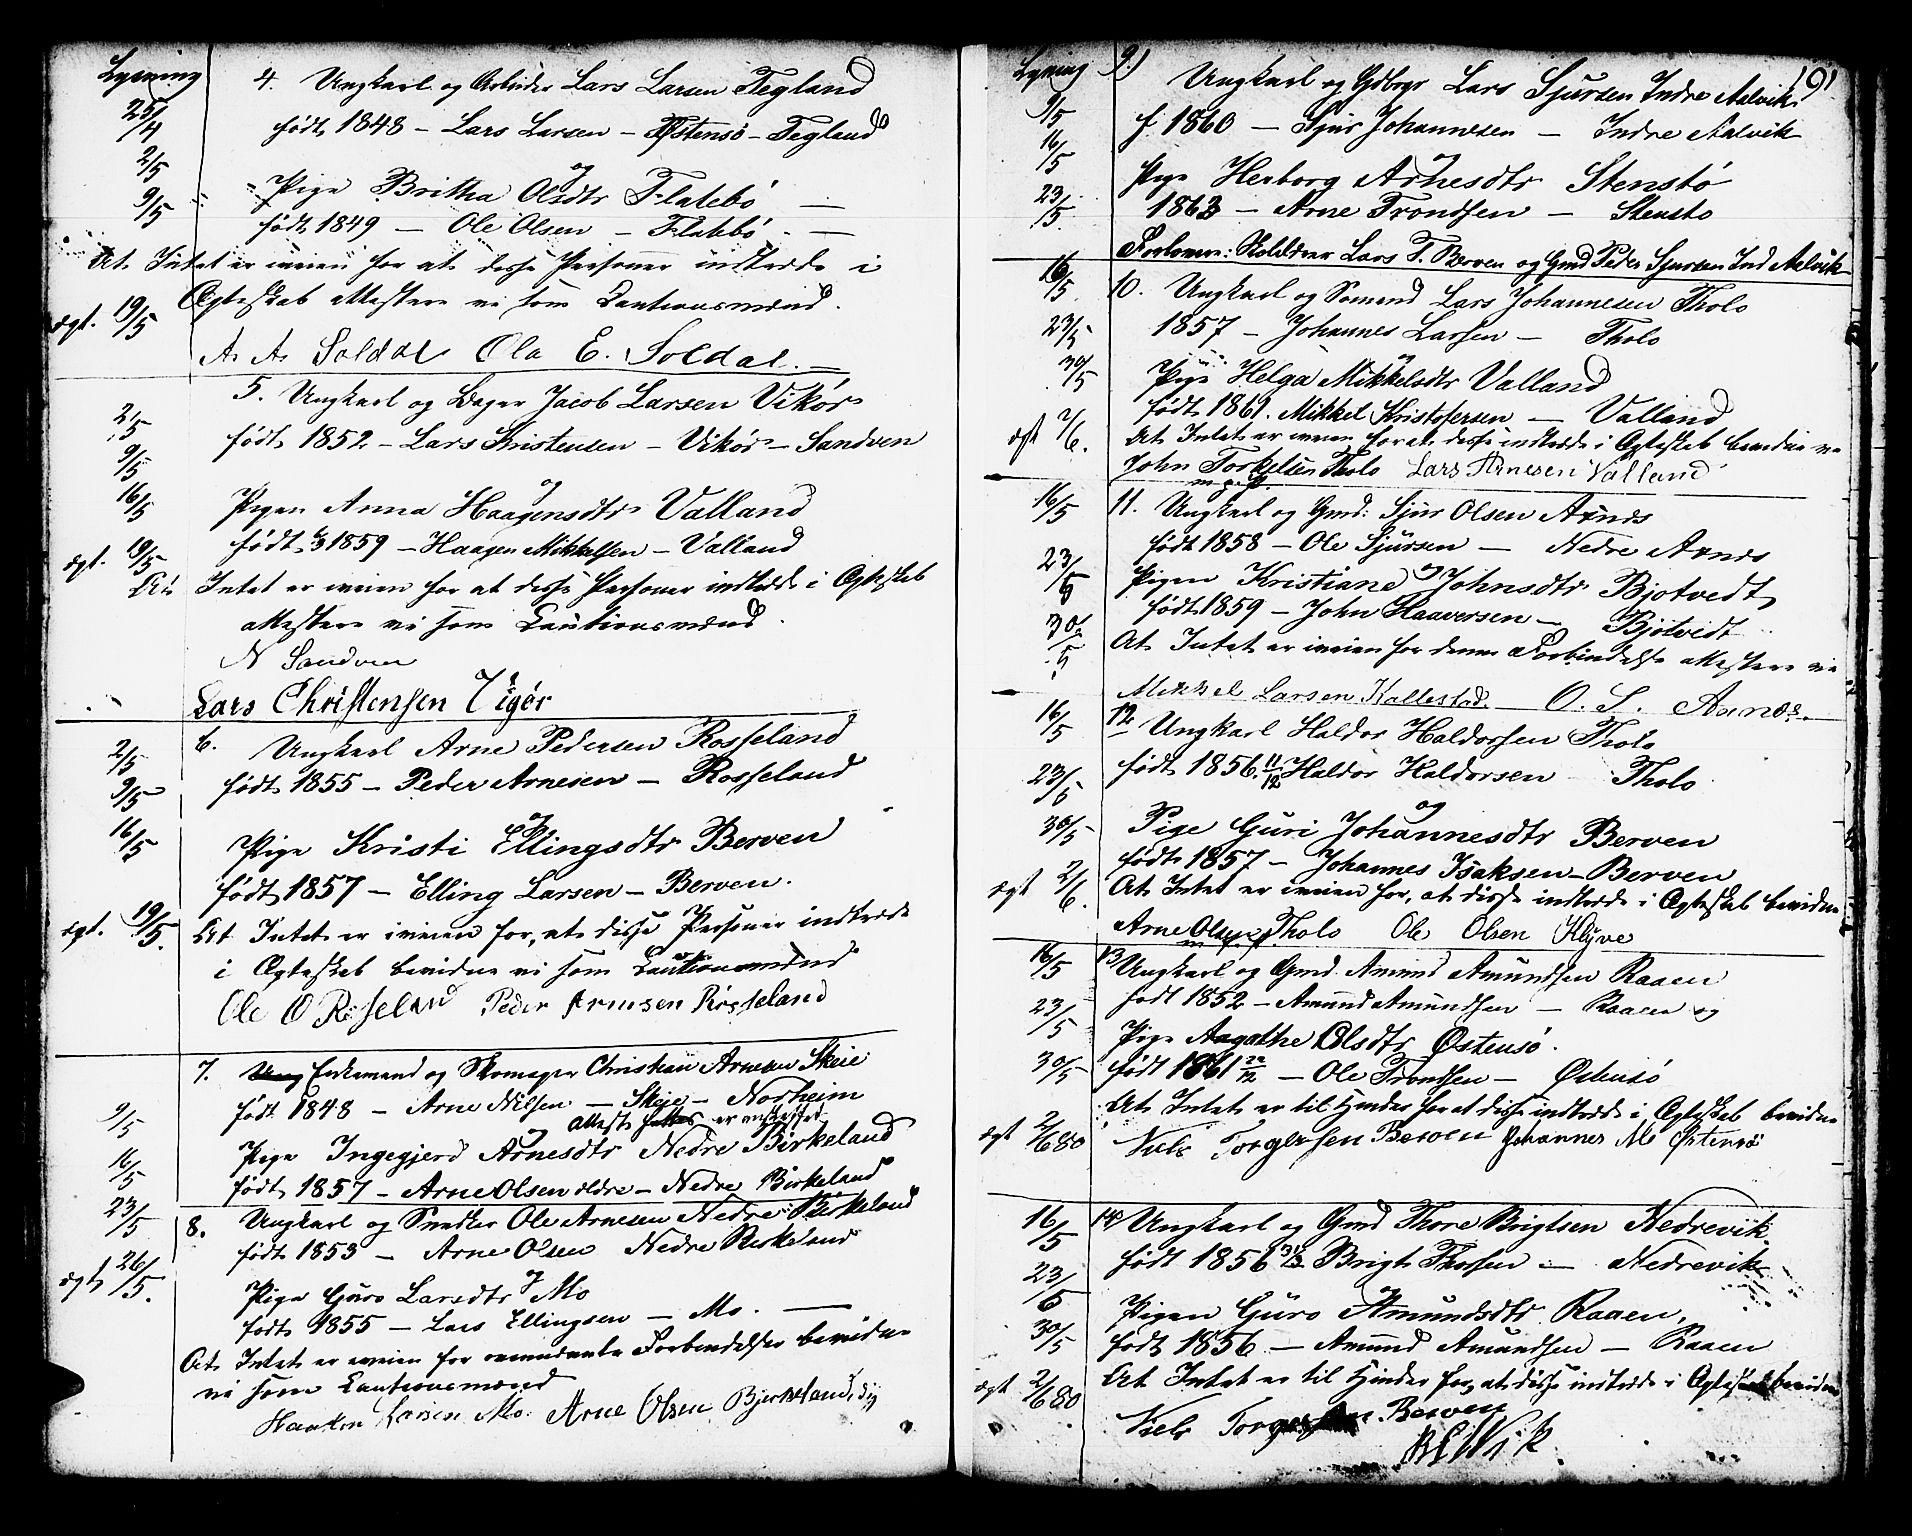 Lysning
4. Ungkarl og Arbeider Lars Larsen Tegland
25/4
født 1848 – Lars Larsen – Østensø – Tegland
2/5
og
9/5
Pige Britha Olsdtr Flatebø —
født 1849 — Ole Olsen – Flatebø —
At Intet er iveien for at disse Personer indtræde i
Ægteskab attestere vi som Cautionsmænd.
ægt. 19/5
A. A. Soldal Ola E. Soldal.
5. Ungkarl og Jacob Larsen Vikør
2/5
født 1852 – Lars Kristensen – Vikør – Sandven
9/5
16/5
og
Pigen Anna Haagensdtr Valland
født 1859 – Haagen Mikkelsen – Valland
ægt. 19/5
At Intet er iveien for at disse Personer indtræde i Ægteskab
attestere vi som Cautionsmænd.
N Sandven
Lars Christensen Vigør
6. Ungkarl Arne Pedersen Rosseland
2/5
født 1855 – Peder Arnesen – Rosseland
9/5
16/5
og
Pige Kristi Ellingsdtr Berven
født 1857 – Elling Larsen – Berven.
ægt. 19/5.
At Intet er iveien for, at disse Personer indtræde
i Ægteskab bevidne vi som Cautionsmænd
Ole O Røsseland Peder Arnesen Røsseland
7. Ung Enkemand og Skomager Christian Arnesen Skeie
født 1848 – Arne Nilsen – Skeie – Norheim
9/5
Attest er
og
Pige Ingegjerd Arnesdtr Nedre Birkeland
16/5
født 1857 – Arne Olsen ældre – Nedre Birkeland
23/5
8. Ungkarl og Snedker Ole Arnesen Nedre Birkeland
født 1853 – Arne Olsen Nedre Birkeland
ægt 26/5.
og
Pige Guro Larsdtr Mo
født 1855 – Lars Ellingsen – Mo. —
At Intet er iveien for Forbindelser bevidne
vi som Cautionsmænd
Haakon Larsen Mo. Arne Olsen Bjerkeland
Lysning
9.)
191
Ungkarl og Lars Sjursen Indre Aalvik
9/5
f. 1860 — Sjur Johannesen — Indre Aalvik
16/5
og
Pige Herborg Arnesdtr Stenstø
23/5.
1863 – Arne Trondsen – Stenstø
Forlovere: Lars T. Berven og Gmd Peder Sjursen Ind Aalvik
16/5
10. Ungkarl og Sømand Lars Johannesen Tholo
23/5
1857 – Johannes Larsen – Tholo
30/5
og
Pige Helga Mikkelsdtr Valland
født 1861. Mikkel Kristofersen — Valland
ægt 2/6.
At Intet er iveien for at disse indtræde i Ægteskab bevidne vi
John Torkelsen Tholo Lars Arnesen Valland
m. p. P.
16/5
11. Ungkarl og Gmd: Sjur Olsen Axnes
født 1858 – Ole Sjursen — Nedre Axnes
23/5
og
Pigen Kristiane Johnsdtr Bjotvedt
født 1859 – John Haaversen – Bjotvedt
30/5
At Intet er iveien for denne Forbindelse attestere vi
Mikkel Larsen Kallestad — O. S. Axnes.
16/5
12 Ungkarl Haldor Haldorsen Tholo
født 1856 11/12 Haldor Haldorsen Tholo
23/5
30/5
og
Pige Guri Johannesdtr Berven
født 1857 – Johannes Isaksen – Berven
ægt 2/6.
At Intet er iveien for, at disse indtræde i Ægteskab bevidne
Arne Olsen Tholo Ole Olsen Klyve
16/5
13 Ungkarl og Gmd. Amund Amundsen Raaen
født 1852 – Amund Amundsen – Raaen og
23/5
Pige Aagathe Olsdtr Østensø.
30/5
født 1861 22/12 – Ole Trondsen – Østensø
At Intet er til Hinder for at disse indtræde i Ægteskab bevidne
ægt 2/6 80
Niels Torgersen Berven Johannes M. Østensø
16/5
14) Ungkarl og Gmd Thore Brigtsen Nedrevik
født 1856 Brigt Thorsen — Nedrevik
23/5
Pigen Guro Amundsdtr Raaen,
30/5
født 1856 — Amund Amundsen — Raaen
At Intet er til Hinder for, at disse indtræde i Ægteskab bevidne
ægt 2/6 80
Niels Torgersen Berven